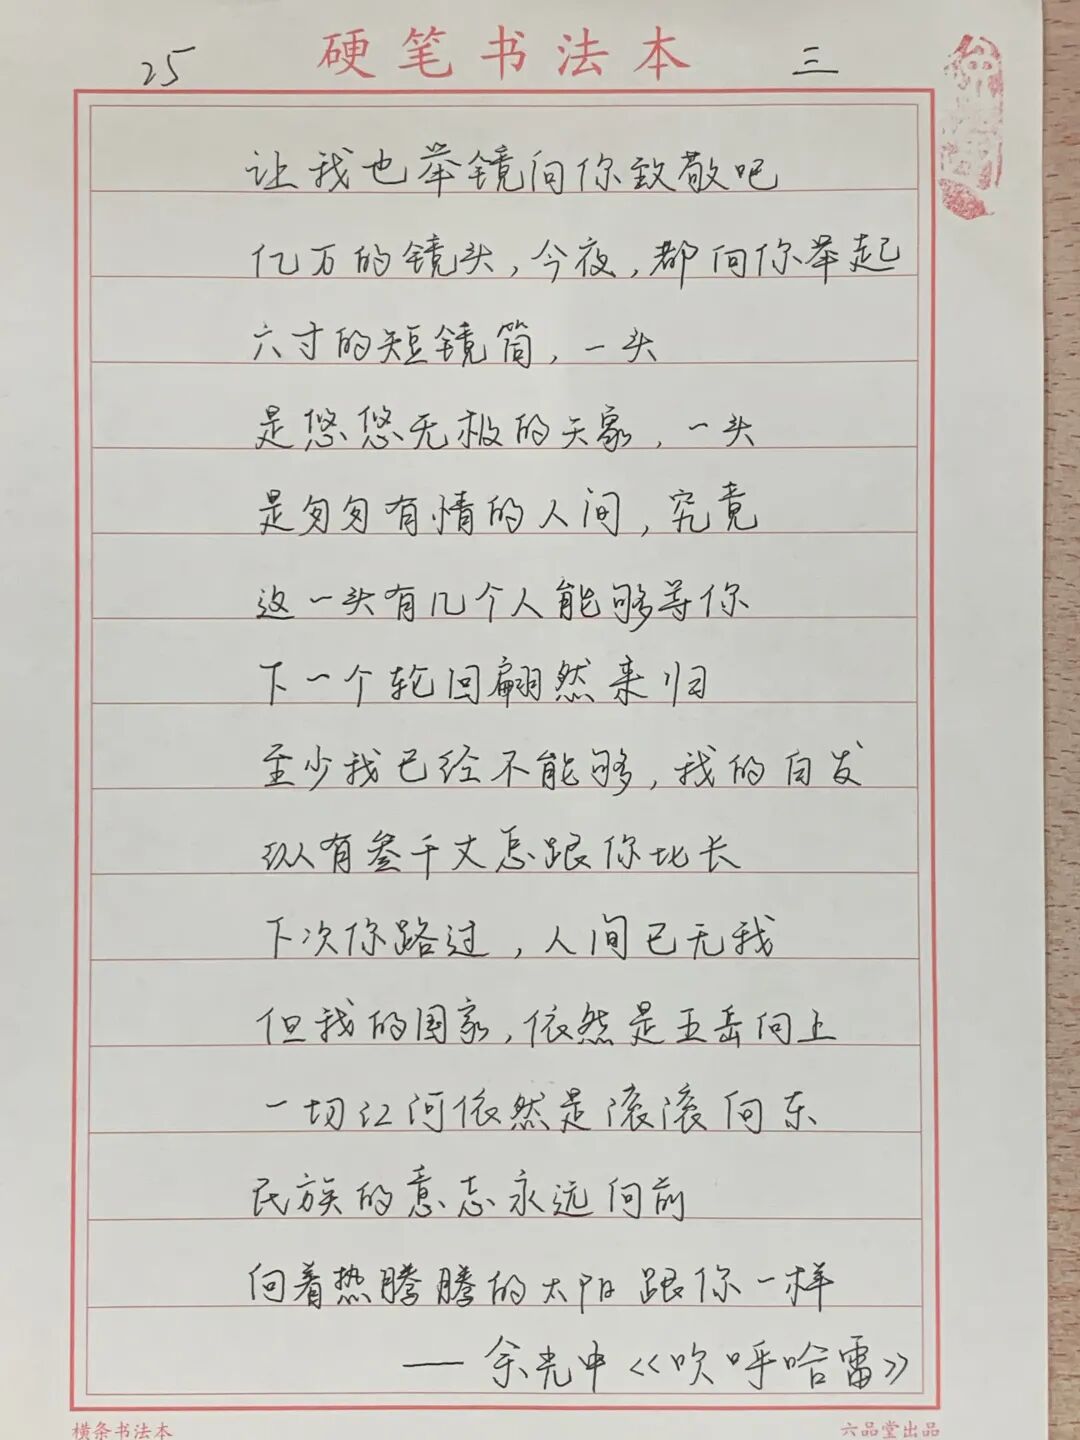 硬笔书法本
25 三
让我也举镜向你致敬吧
亿万的镜头,今夜,都向你举起
六寸的短镜筒,一头
是悠悠无极的天象,一头
是匆匆有情的人间,究竟
这一头有几个人能够等你
下一个轮回翩然来归
至少我已经不能够,我的白发
纵有叁千丈怎跟你比长
下次你路过,人间已无我
但我的国家,依然是五岳向上
一切江河依然是滚滚向东
民族的意志永远向前
向着热腾腾的太阳跟你一样
——余光中《吹呼哈雷》
横条书法本 六品堂出品